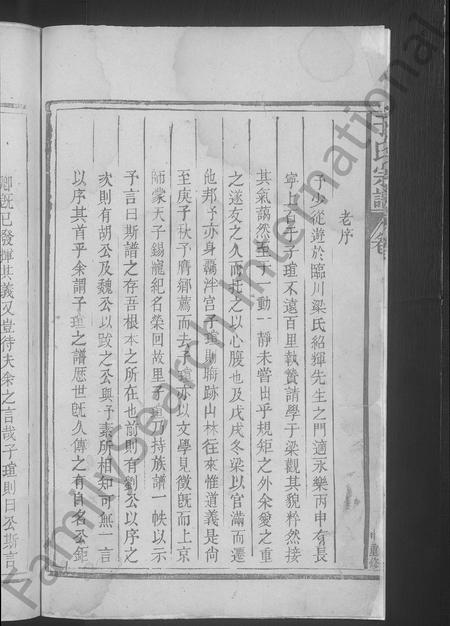 氏宗譜
老序
予少從遊於臨川梁氏紹輝先生之門適永樂丙申有長
寧上石于子瑄不遠百里執贄請學于梁觀其貌粹然接
其氣藹然至于一動一靜未嘗出乎規矩之外余愛之重
之遂友之久而託之以心腹也及戊戌冬梁以官滿而遷
他邦予亦身羈泮宮子瑄則晦跡山林往來惟道義是尚
至庚子秋予膺鄉薦而去子瑄亦以文學見徵旣而上京
師蒙天子錫寵紀名榮回故里子瑄乃持族譜一帙以示
予言曰斯譜之存吾根本之所在也前則有劉公以序之
次則有胡公及魏公以跋之公與予素所相知可無一言
以序其首乎余謂子瑄之譜歷世旣久傳之有自名公鉅
卿旣已發揮其義又豈待夫余之言哉子瑄則曰公斯言
重修
FamilySearch International